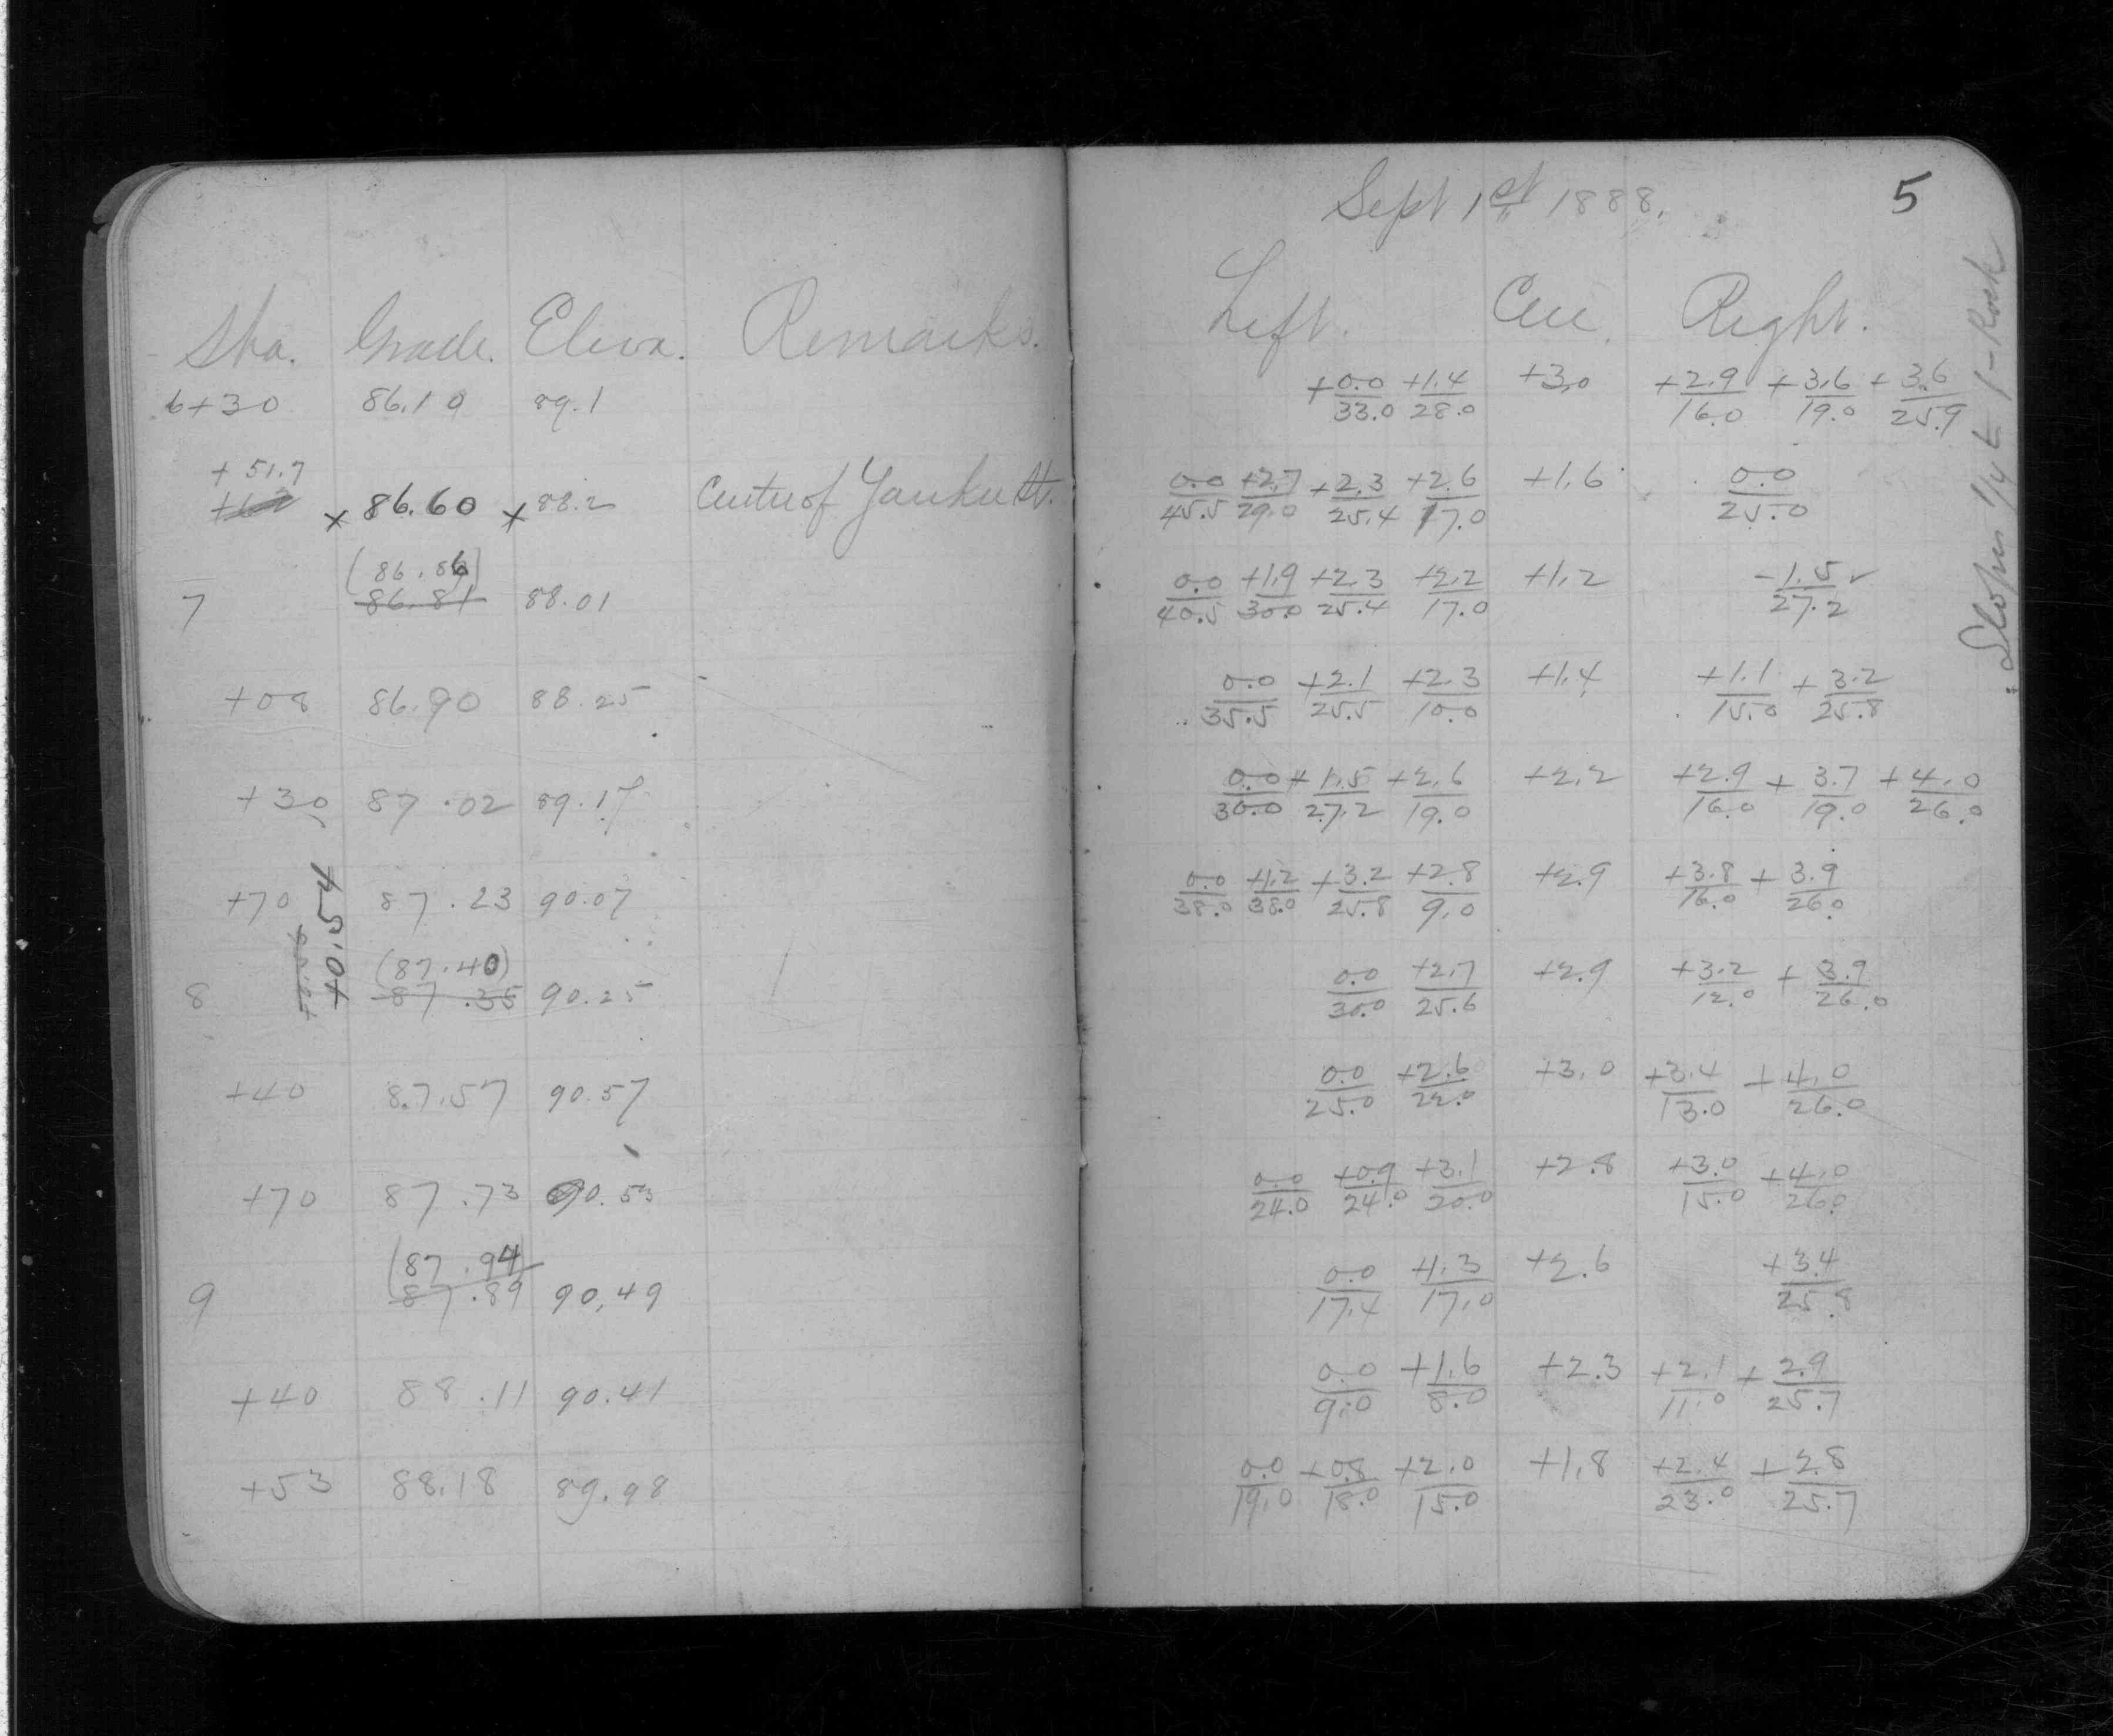 Sept 1st 1888. 5
Sta. Grade. Eleva. Remarks. Left. Cen. Right.
6+30 86.10 89.1 +0.0/33.0 +1.4/28.0 +3.0 +2.9/16.0 +3.6/19.0 +3.6/25.9
+51.7
+62 x 86.60 x 88.2 Centre of Yankee St. 0.0/45.5 +2.7/29.0 +2.3/25.4 +2.6/17.0 +1.6 0.0/25.0
(86.86)
7 86.81 88.01 0.0/40.5 +1.9/30.0 +2.3/25.4 +2.2/17.0 +1.2 -1.5/27.2 ✓
+08 86.90 88.25 0.0/35.5 +2.1/25.5 +2.3/10.0 +1.4 +1.1/15.0 +3.2/25.8
+30 87.02 89.17 0.0/30.0 +1.5/27.2 +2.6/19.0 +2.2 +2.9/16.0 +3.7/19.0 +4.0/26.0
+70 87.23 90.07 0.0/38.0 +1.2/38.0 +3.2/25.8 +2.8/9.0 +2.9 +3.8/16.0 +3.9/26.0
+0.54
(87.40)
8 87.35 90.25 0.0/30.0 +2.7/25.6 +2.9 +3.2/12.0 +3.9/26.0
+40 87.57 90.57 0.0/25.0 +2.6/22.0 +3.0 +3.4/13.0 +4.0/26.0
+70 87.73 90.53 0.0/24.0 +0.9/24.0 +3.1/20.0 +2.8 +3.0/15.0 +4.0/26.0
(87.94
9 87.89 90.49 0.0/17.4 +1.3/17.0 +2.6 +3.4/25.8
+40 88.11 90.41 0.0/9.0 +1.6/8.0 +2.3 +2.1/11.0 +2.9/25.7
+53 88.18 89.98 0.0/19.0 +0.8/18.0 +2.0/15.0 +1.8 +2.4/23.0 +2.8/25.7
Slopes 1/4 to 1 - Rock